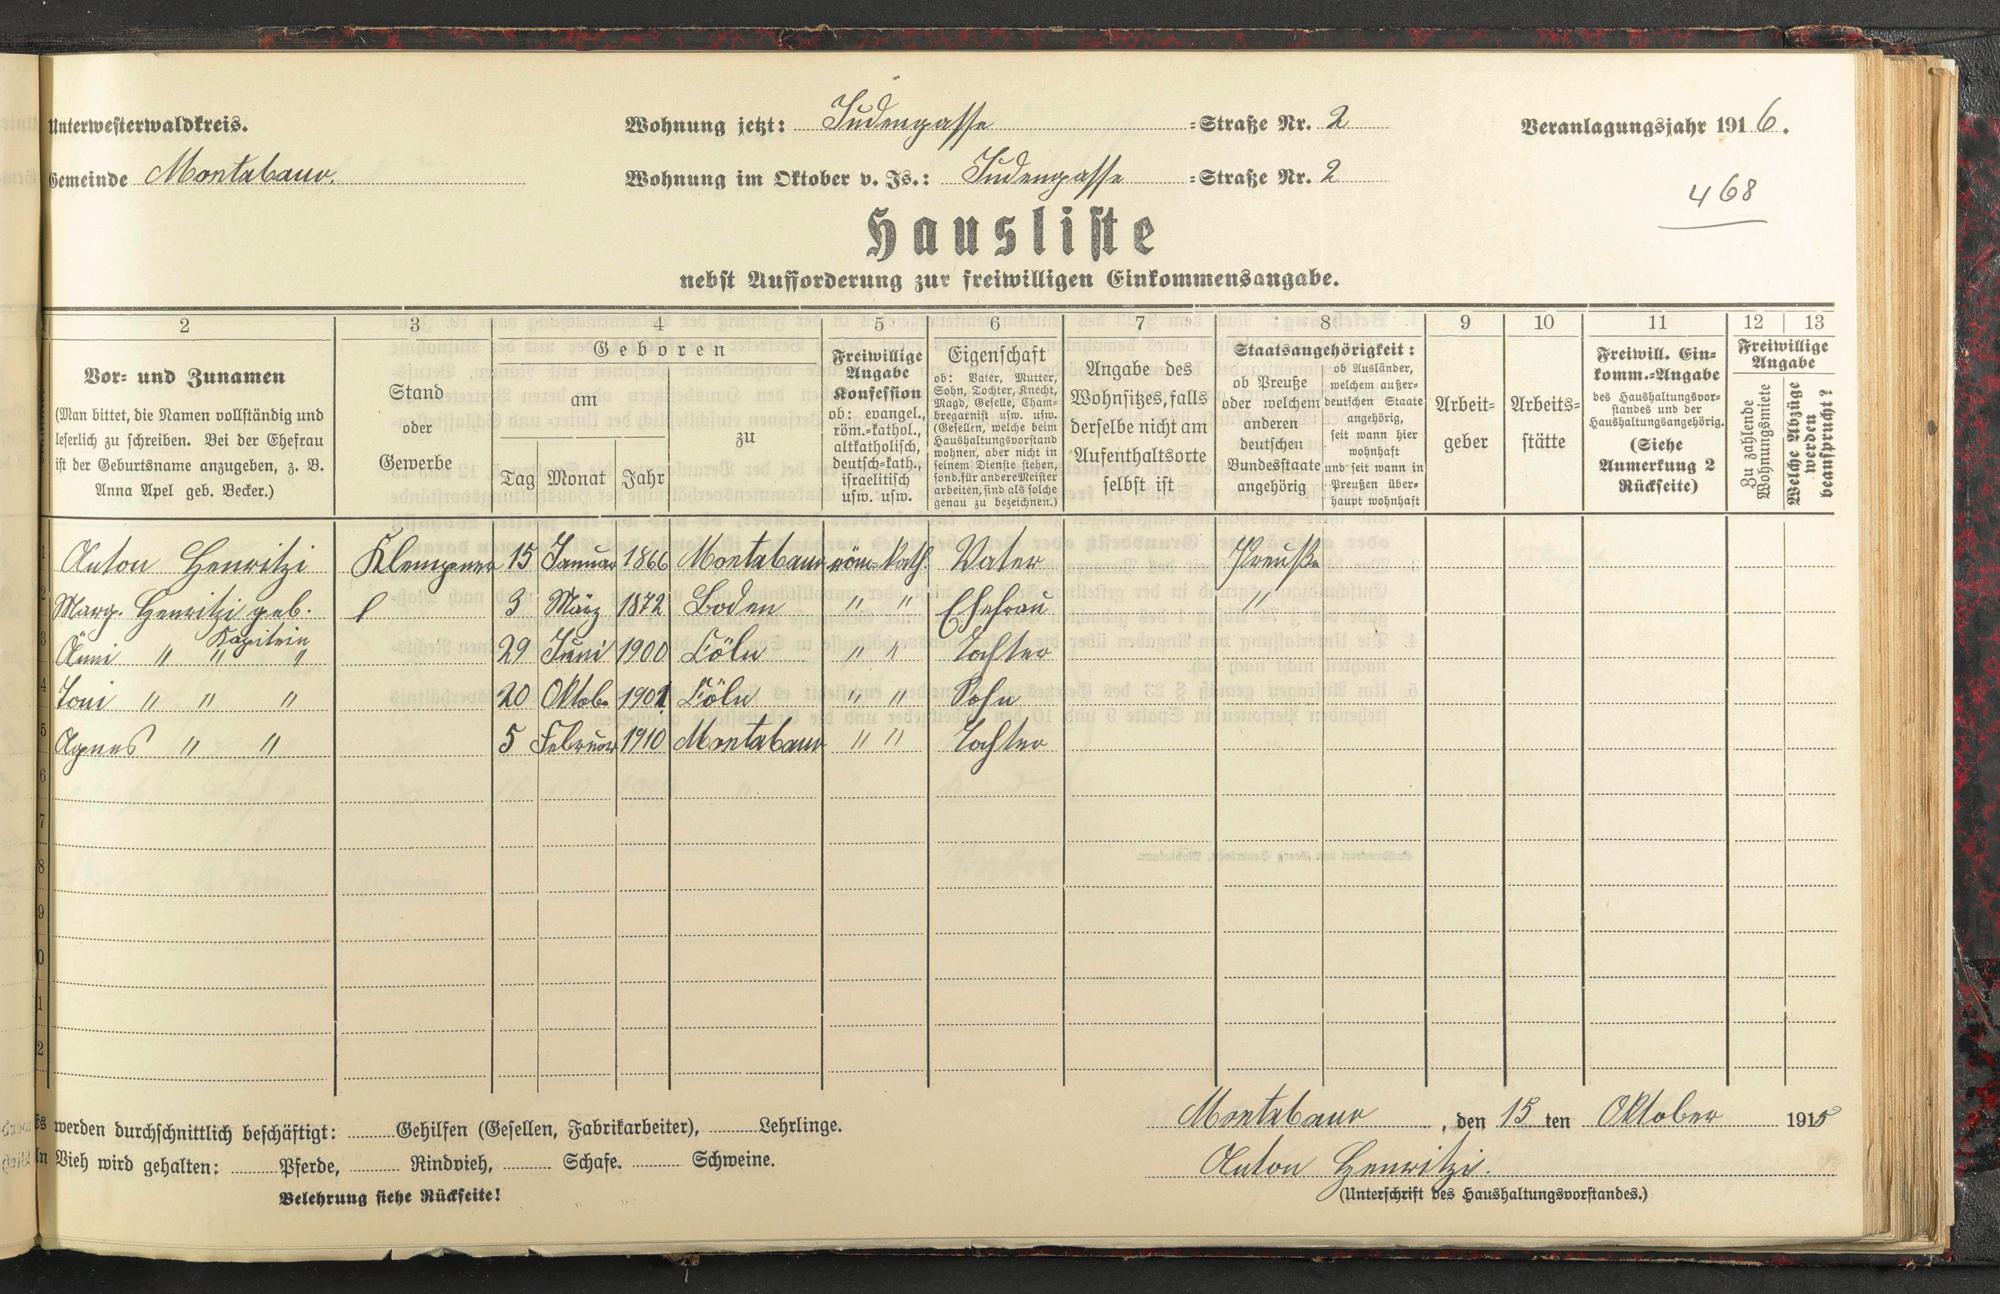 Unterwesterwaldkreis.
Wohnung jetzt: Judengasse =Straße Nr. 2
Veranlagungsjahr 1916.
Gemeinde Montabaur.
Wohnung im Oktober v. Js.: Judengasse =Straße Nr. 2
468
Hausliste
nebst Aufforderung zur freiwilligen Einkommensangabe.
2 3 4 5 6 7 8 9 10 11 12 13
Vor- und Zunamen
(Man bittet, die Namen vollständig und
leserlich zu schreiben. Bei der Ehefrau
ist der Geburtsname anzugeben, z. B.
Anna Apel geb. Becker.)
Stand
oder
Gewerbe
Geboren
am
Tag Monat Jahr
zu
Freiwillige
Angabe
Konfession
ob: evangel.,
röm.-kathol.,
altkatholisch,
deutsch-kath.,
israelitisch
usw. usw.
Eigenschaft
ob: Vater, Mutter,
Sohn, Tochter, Knecht,
Magd, Geselle, Cham-
bregarnist usw. usw.
(Gesellen, welche beim
Haushaltungsvorstand
wohnen, aber nicht in
seinem Dienste stehen,
sond. für andere Meister
arbeiten, sind als solche
genau zu bezeichnen.)
Angabe des
Wohnsitzes, falls
derselbe nicht am
Aufenthaltsorte
selbst ist
Staatsangehörigkeit:
ob Preuße
oder welchem
anderen
deutschen
Bundesstaate
angehörig
ob Ausländer,
welchem außer-
deutschen Staate
angehörig,
seit wann hier
wohnhaft
und seit wann in
Preußen über-
haupt wohnhaft
Arbeit-
geber
Arbeits-
stätte
Freiwill. Ein-
komm.-Angabe
des Haushaltungsvor-
standes und der
Haushaltungsangehörig.
(Siehe
Anmerkung 2
Rückseite)
Freiwillige
Angabe
Zu zahlende
Wohnungsmiete
Welche Abzüge
werden
beansprucht?
1 Anton Henritzi Klempner 15 Januar 1866 Montabaur röm-kath. Vater Preuße
2 Marg. Henritzi geb. 3 März 1872 Boden " " Ehefrau "
Kapitein
3 Änni " " " 29 Juni 1900 Cöln " " Tochter
4 Toni " " " 20 Oktob. 1901 Cöln " " Sohn
5 Agnes " " 5 Februar 1910 Montabaur " " Tochter
6
7
8
9
0
1
2
Es werden durchschnittlich beschäftigt: Gehilfen (Gesellen, Fabrikarbeiter), Lehrlinge.
Montabaur, den 15 ten Oktober 1915
An Vieh wird gehalten: Pferde, Rindvieh, Schafe. Schweine.
Anton Henritzi.
Belehrung siehe Rückseite!
(Unterschrift des Haushaltungsvorstandes.)